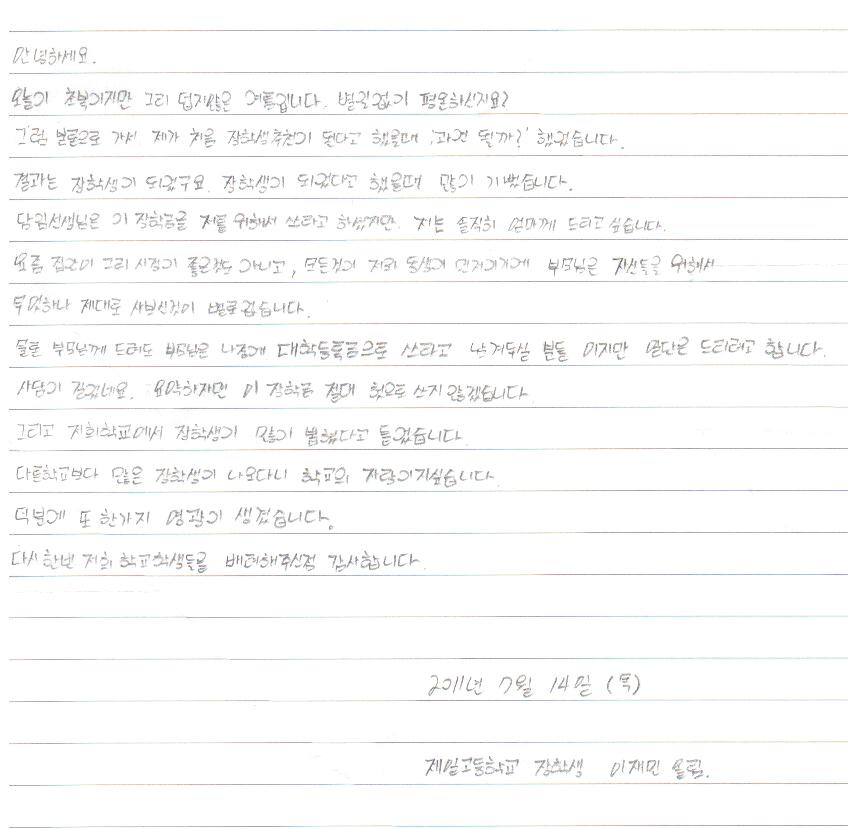 안녕하세요.
오늘이 초복이지만 그리 덥지않은 여름입니다. 별일없이 평온하신지요?
그럼 본론으로 가서 제가 처음 장학생추천이 된다고 했을때 '과연 될까?' 했었습니다.
결과는 장학생이 되었구요. 장학생이 되었다고 했을때 많이 기뻤습니다.
담임선생님은 이 장학금을 저를 위해서 쓰라고 하셨지만 저는 솔직히 엄마께 드리고 싶습니다.
요즘 집안이 그리 사정이 좋은것도 아니고, 모든것이 저와 동생이 먼저이기에 부모님은 자신들을 위해서
무엇하나 제대로 사보신것이 별로 없습니다.
물론 부모님께 드려도 부모님은 나중에 대학등록금으로 쓰라고 남겨두실 분들 이지만 일단은 드리려고 합니다.
사담이 길었네요. 요약하자면 이 장학금 절대 헛으로 쓰지 않겠습니다.
그리고 저희학교에서 장학생이 많이 뽑혔다고 들었습니다.
다른학교보다 많은 장학생이 나오다니 학교의 자랑이지싶습니다.
덕분에 또 한가지 영광이 생겼습니다.
다시한번 저희 학교학생들을 배려해주신점 감사합니다.
2011년 7월 14일 (목)
제일고등학교 장학생 이재민 올림.